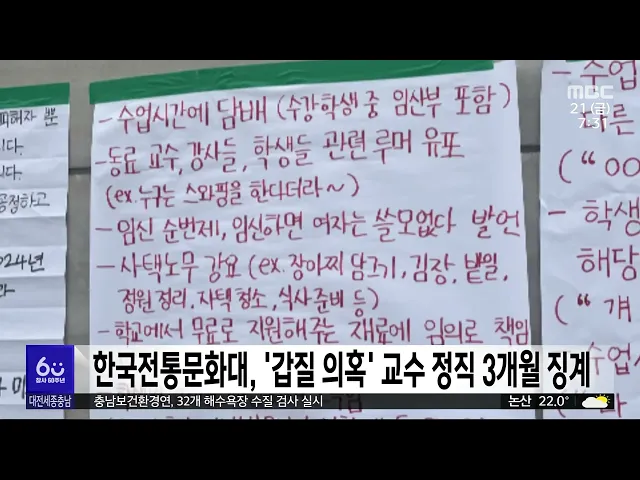 MBC
21(금)
7:31
피해자 뿐
니다.
니다.
공정하고
024년
- 수업시간에 담배 (수강학생 중 임산부 포함)
- 동료 교수, 강사들, 학생들 관련 루머 유포
(ex. 누구는 스와핑을 한다더라~)
- 임신 순번제, 임신하면 여자는 쓸모없다 발언
- 사택노무 강요 (ex. 장아찌 담그기, 김장, 밭일,
정원 정리, 자택 청소, 식사 준비 등)
- 학교에서 무료로 지원해주는 재료에 임의로 책임
- 수업
른
("00
- 학생
해당
("걔
수업시
60
창사 60주년
대전세종충남
한국전통문화대, '갑질 의혹' 교수 정직 3개월 징계
충남보건환경연, 32개 해수욕장 수질 검사 실시
논산 22.0°